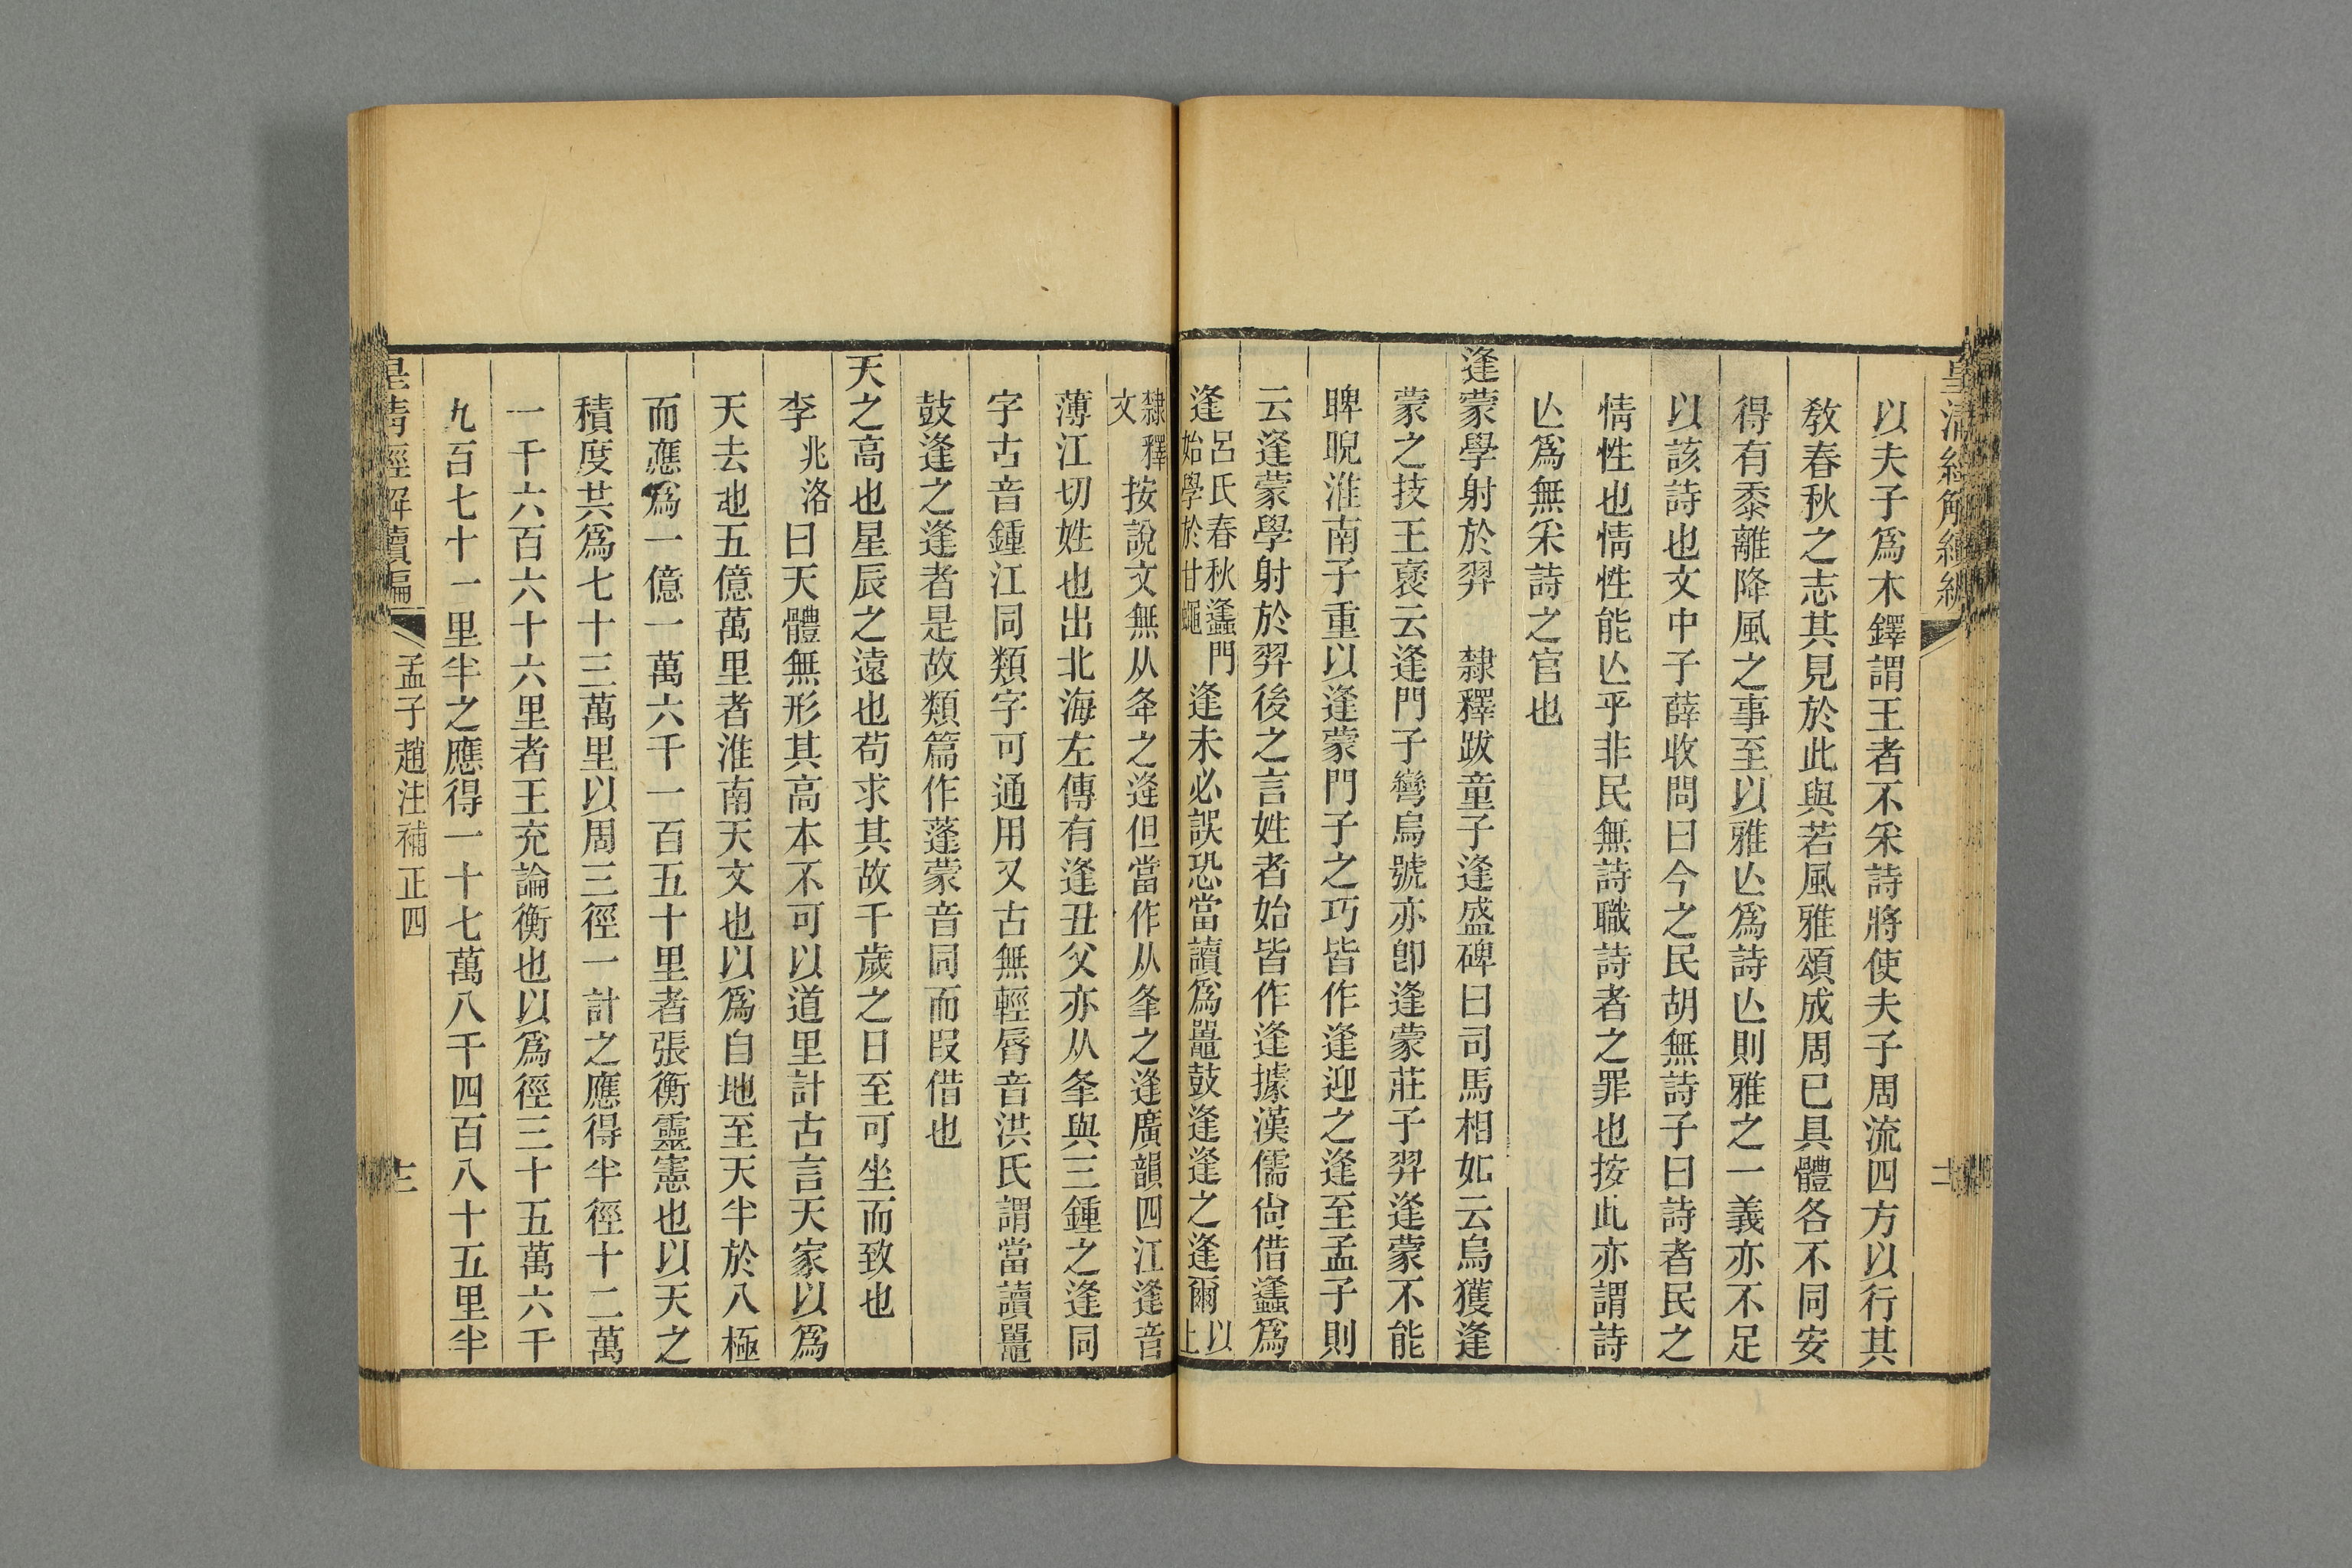 皇清經解續編
以夫子爲木鐸謂王者不采詩將使夫子周流四方以行其
敎春秋之志其見於此與若風雅頌成周已具體各不同安
得有黍離降風之事至以雅亾爲詩亾則雅之一義亦不足
以該詩也文中子薛收問曰今之民胡無詩子曰詩者民之
情性也情性能亾乎非民無詩職詩者之罪也按此亦謂詩
亾爲無采詩之官也
逄蒙學射於羿　隸釋跋童子逄盛碑曰司馬相如云烏獲逄
蒙之技王褒云逄門子彎烏號亦卽逄蒙莊子羿逄蒙不能
睥睨淮南子重以逄蒙門子之巧皆作逄迎之逄至孟子則
云逄蒙學射於羿後之言姓者始皆作逄據漢儒尙借蠭爲
逄呂氏春秋蠭門始學於甘蠅逄未必誤恐當讀爲鼉鼓逄逄之逄爾以上
隸釋文按說文無从夅之逄但當作从夆之逢廣韻四江逄音
薄江切姓也出北海左傳有逄丑父亦从夆與三鍾之逢同
字古音鍾江同類字可通用又古無輕脣音洪氏謂當讀鼉
鼓逢之逢者是故類篇作蓬蒙音同而叚借也
天之高也星辰之遠也苟求其故千歲之日至可坐而致也
李兆洛曰天體無形其高本不可以道里計古言天家以爲
天去地五億萬里者淮南天文也以爲自地至天半於八極
而應爲一億一萬六千一百五十里者張衡靈憲也以天之
積度共爲七十三萬里以周三徑一計之應得半徑十二萬
一千六百六十六里者王充論衡也以爲徑三十五萬六千
九百七十一里半之應得一十七萬八千四百八十五里半
皇清經解續編
孟子趙注補正四